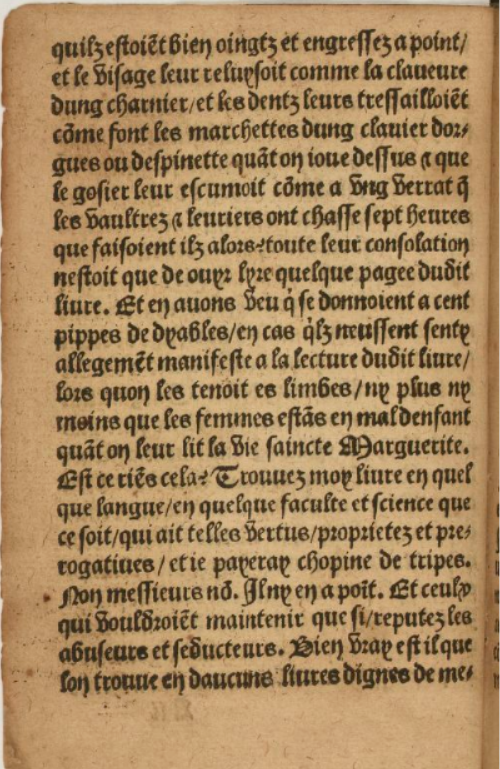 quilz estoiẽt bien oingtz et engressez a point/
et le visage leur reluysoit comme la claueure
dung charnier/et les dentz leurs tressailloiẽt
cõme font les marchettes dung clauier dor⸗
gues ou despinette quãt on ioue dessus ⁊ que
le gosier leur escumoit cõme a vng verrat q̃
les vaultrez ⁊ leuriers ont chasse sept heures
que faisoient ilz alors?toute leur consolation
nestoit que de ouyr lyre quelque pagee dudit
liure. Et en auons veu q̇ se donnoient a cent
pippes de dyables/en cas q̇lz neussent senty
allegemẽt manifeste a la lecture dudit liure/
lors quon les tenoit es limbes/ny plus ny
moins que les femmes estãs en mal denfant
quãt on leur lit la vie saincte Marguerite.
Est ce riẽs cela? Trouuez moy liure en quel
que langue/en quelque faculte et science que
ce soit/qui ait telles vertus/proprietez et pre⸗
rogatiues/et ie payeray chopine de tripes.
Non messieurs nõ. Il ny en a poĩt. Et ceulx
qui vouldroiẽt maintenir que si/reputez les
abuseurs et seducteurs. Bien vray est il que
lon trouue en daucuns liures dignes de me⸗